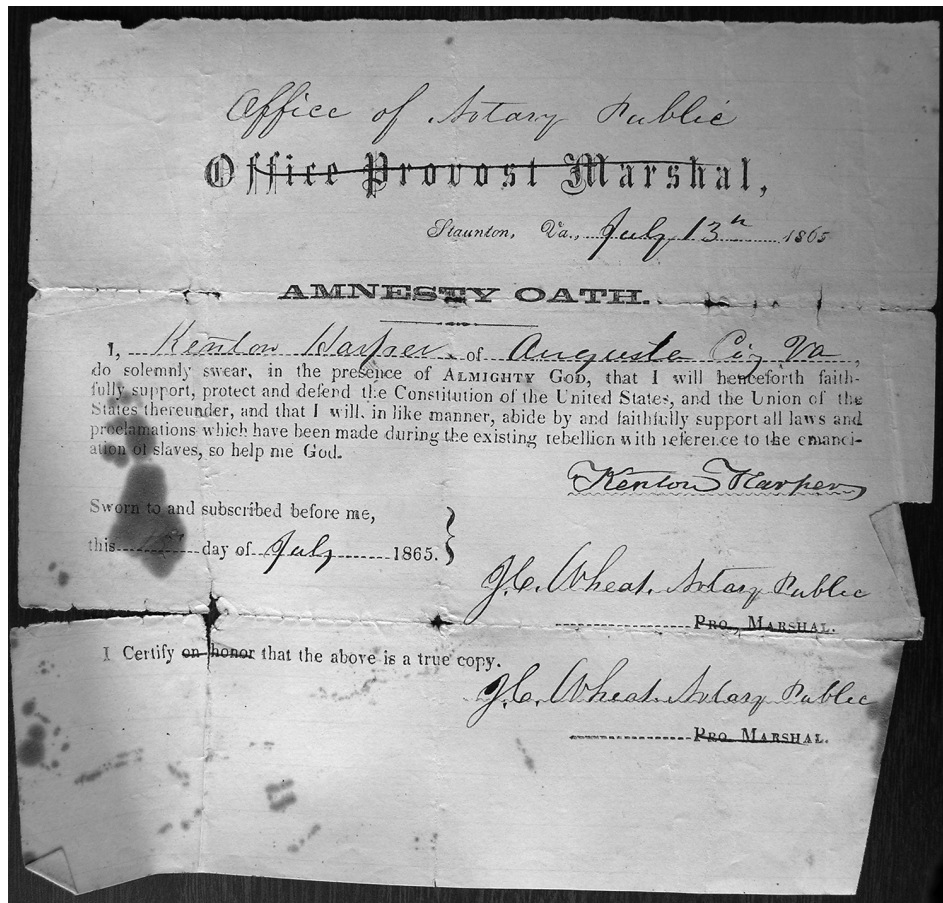 Office of Notary Public
Office Provost Marshal,
Staunton, Va., July 13th 1865
AMNESTY OATH.
I, Kenton Harper of Augusta Co Va,
do solemnly swear, in the presence of ALMIGHTY GOD, that I will henceforth faith-
fully support, protect and defend the Constitution of the United States, and the Union of the
States thereunder, and that I will, in like manner, abide by and faithfully support all laws and
proclamations which have been made during the existing rebellion with reference to the emanci-
ation of slaves, so help me God.
Kenton Harper
Sworn to and subscribed before me,
this day of July 1865.
J.C. Wheat. Notary Public
PRO. MARSHAL.
I Certify on honor that the above is a true copy.
J.C. Wheat. Notary Public
PRO. MARSHAL.